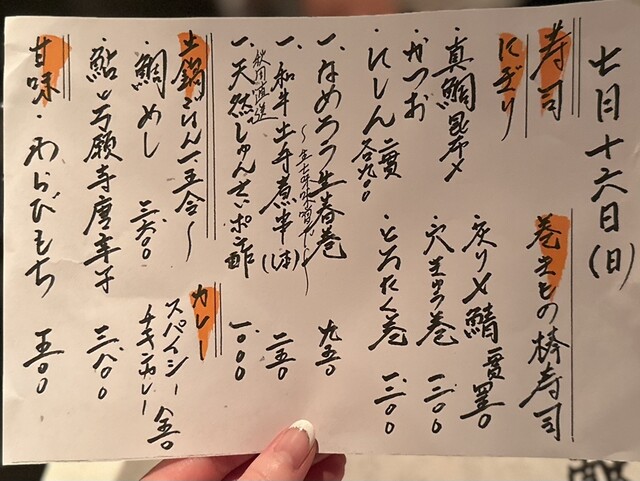 七月十六日(日)
寿司
にぎり
真鯛昆布〆
かつお
にしん 二貫 各九〇〇
巻きもの 棒寿司
炙り〆鯖 一貫
穴きゅう巻 一、三〇〇
とろたく巻 一、三〇〇
一、なめろう生春巻 九五〇
一、和牛土手煮串(一本) 二五〇
秋田直送
一、天然じゅんさいポン酢 一、〇〇〇
土鍋ごはん 一、五合〜
鯛めし
鮎と万願寺唐辛子 三、八〇〇
カレー
スパイシー
チキンカレー
甘味・わらびもち 五〇〇